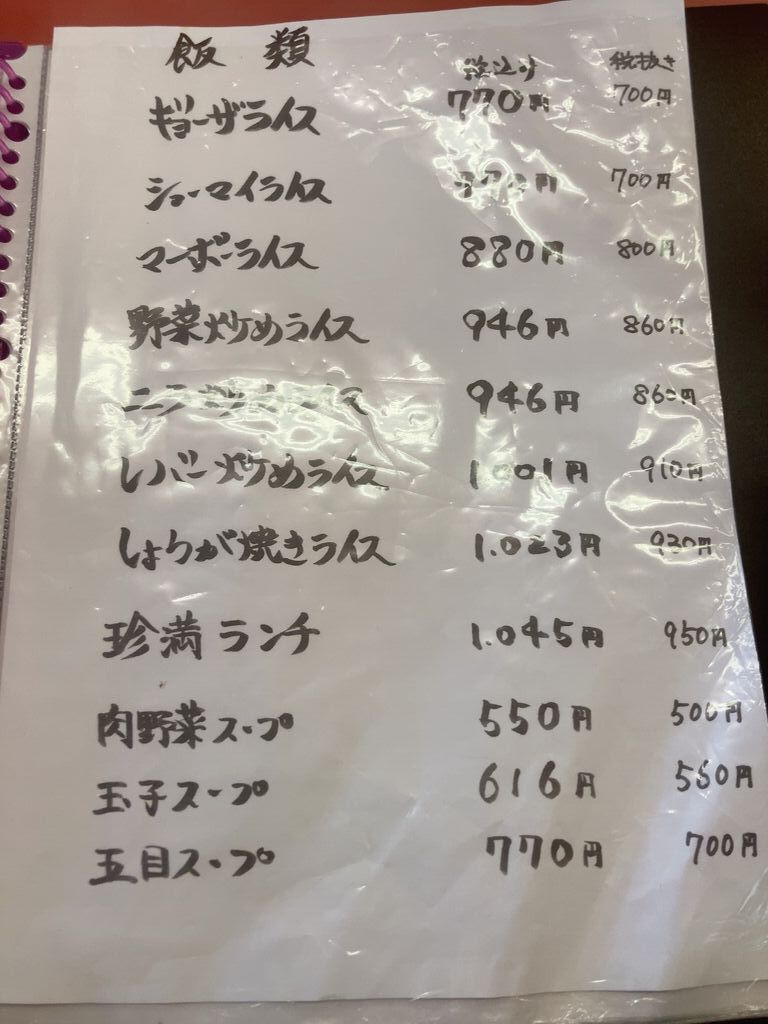 飯類 税込み 税抜き
ギョーザライス 770円 700円
シューマイライス 770円 700円
マーボーライス 880円 800円
野菜炒めライス 946円 860円
ニラ 946円 860円
レバー炒めライス 1.001円 910円
しょうが焼きライス 1.023円 930円
珍満ランチ 1.045円 950円
肉野菜スープ 550円 500円
玉子スープ 616円 560円
五目スープ 770円 700円